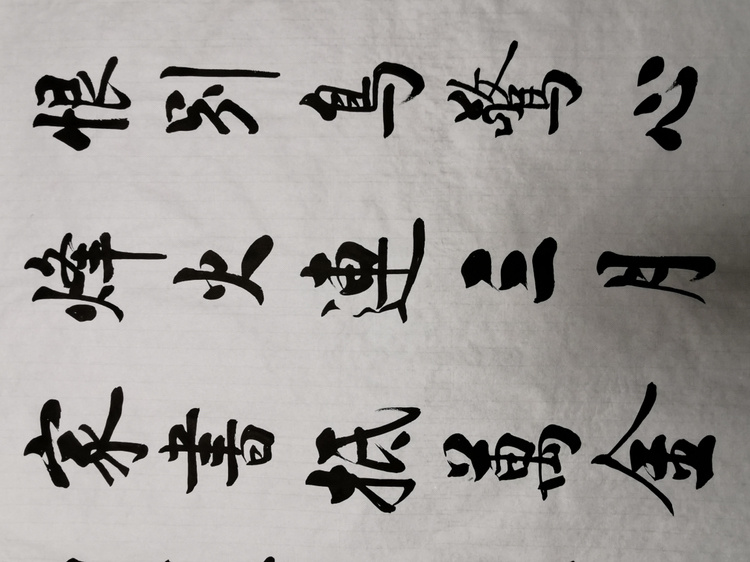 恨別鳥驚心
烽火連三月
家書抵萬金